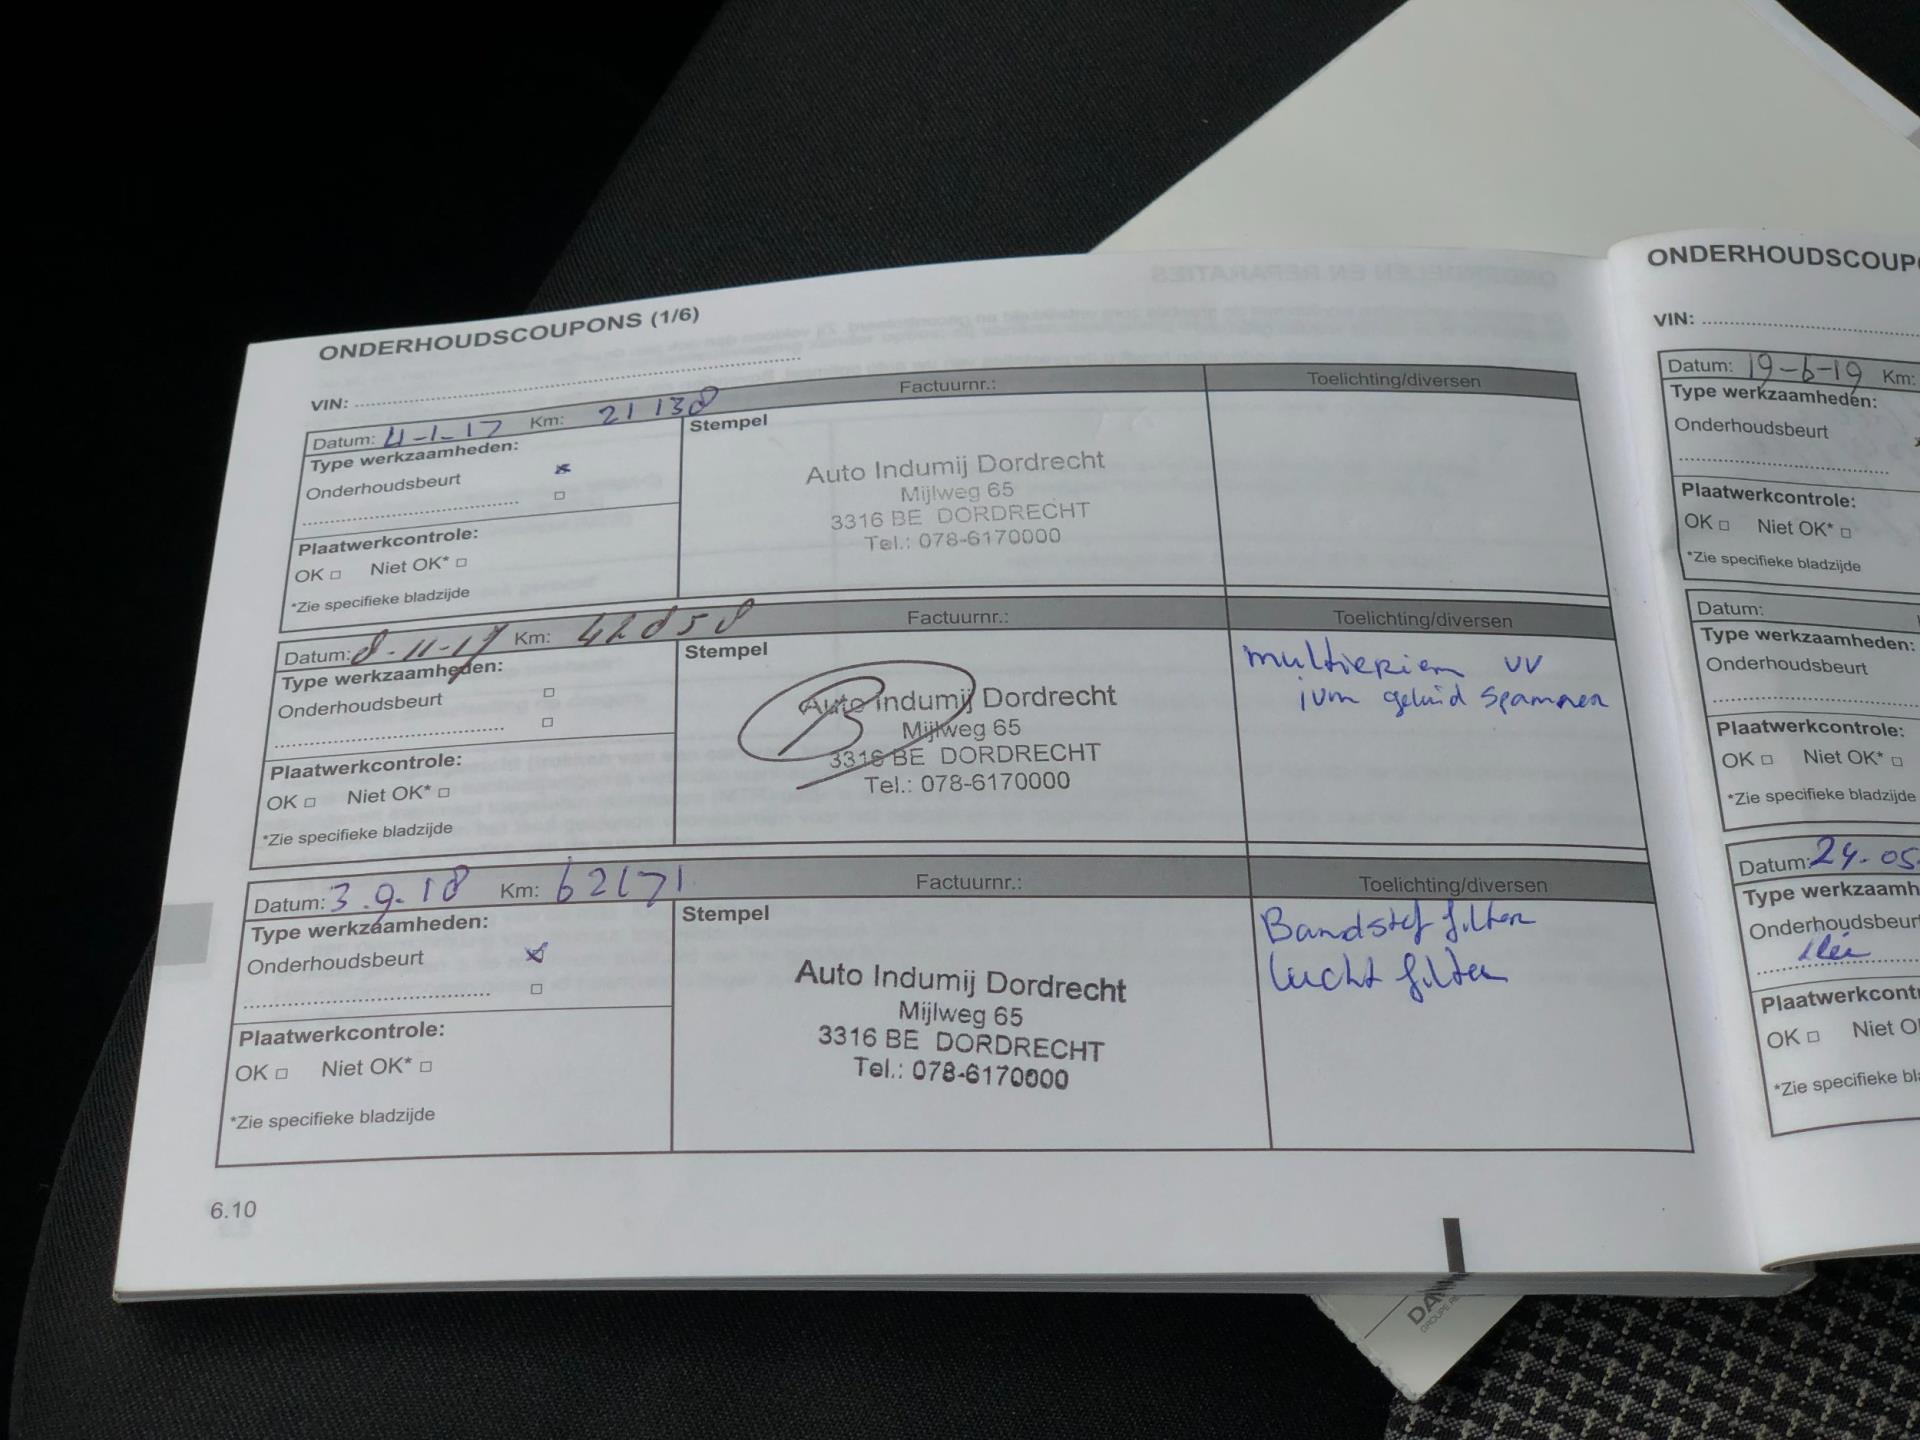 ONDERHOUDSCOUPONS (1/6)
VIN:
Datum: 4-1-17 Km: 21138 Factuurnr.: Toelichting/diversen
Type werkzaamheden:
Onderhoudsbeurt
Plaatwerkcontrole:
OK Niet OK*
*Zie specifieke bladzijde
Stempel
Auto Indumij Dordrecht
Mijlweg 65
3316 BE DORDRECHT
Tel.: 078-6170000
Datum: 8-11-17 Km: 42858 Factuurnr.: Toelichting/diversen
Type werkzaamheden:
Onderhoudsbeurt
Plaatwerkcontrole:
OK Niet OK*
*Zie specifieke bladzijde
Stempel
Auto Indumij Dordrecht
Mijlweg 65
3316 BE DORDRECHT
Tel.: 078-6170000
multieriem vv
ivm geluid spannen
Datum: 3.9.18 Km: 62171 Factuurnr.: Toelichting/diversen
Type werkzaamheden:
Onderhoudsbeurt
Plaatwerkcontrole:
OK Niet OK*
*Zie specifieke bladzijde
Stempel
Auto Indumij Dordrecht
Mijlweg 65
3316 BE DORDRECHT
Tel.: 078-6170000
Bandstof filter
lucht filter
6.10
ONDERHOUDSCOUP
VIN:
Datum: 19-6-19 Km:
Type werkzaamheden:
Onderhoudsbeurt
Plaatwerkcontrole:
OK Niet OK*
*Zie specifieke bladzijde
Datum:
Type werkzaamheden:
Onderhoudsbeurt
Plaatwerkcontrole:
OK Niet OK*
*Zie specifieke bladzijde
Datum: 24-05
Type werkzaamh
Onderhoudsbeurt
Plaatwerkcont
OK Niet O
*Zie specifieke bla